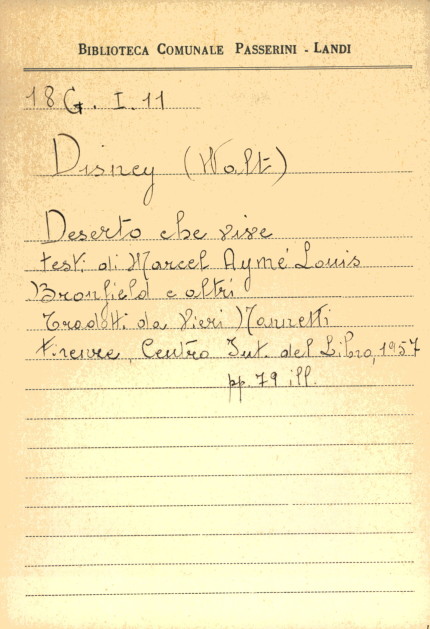 BIBLIOTECA COMUNALE PASSERINI - LANDI
18 G. I. 11
Disney (Walt)
Deserto che vive
testi di Marcel Aymé Louis
Bromfield e altri
Tradotti da Vieri Nannetti
Firenze, Centro Int. del Libro, 1957
pp. 79 ill.